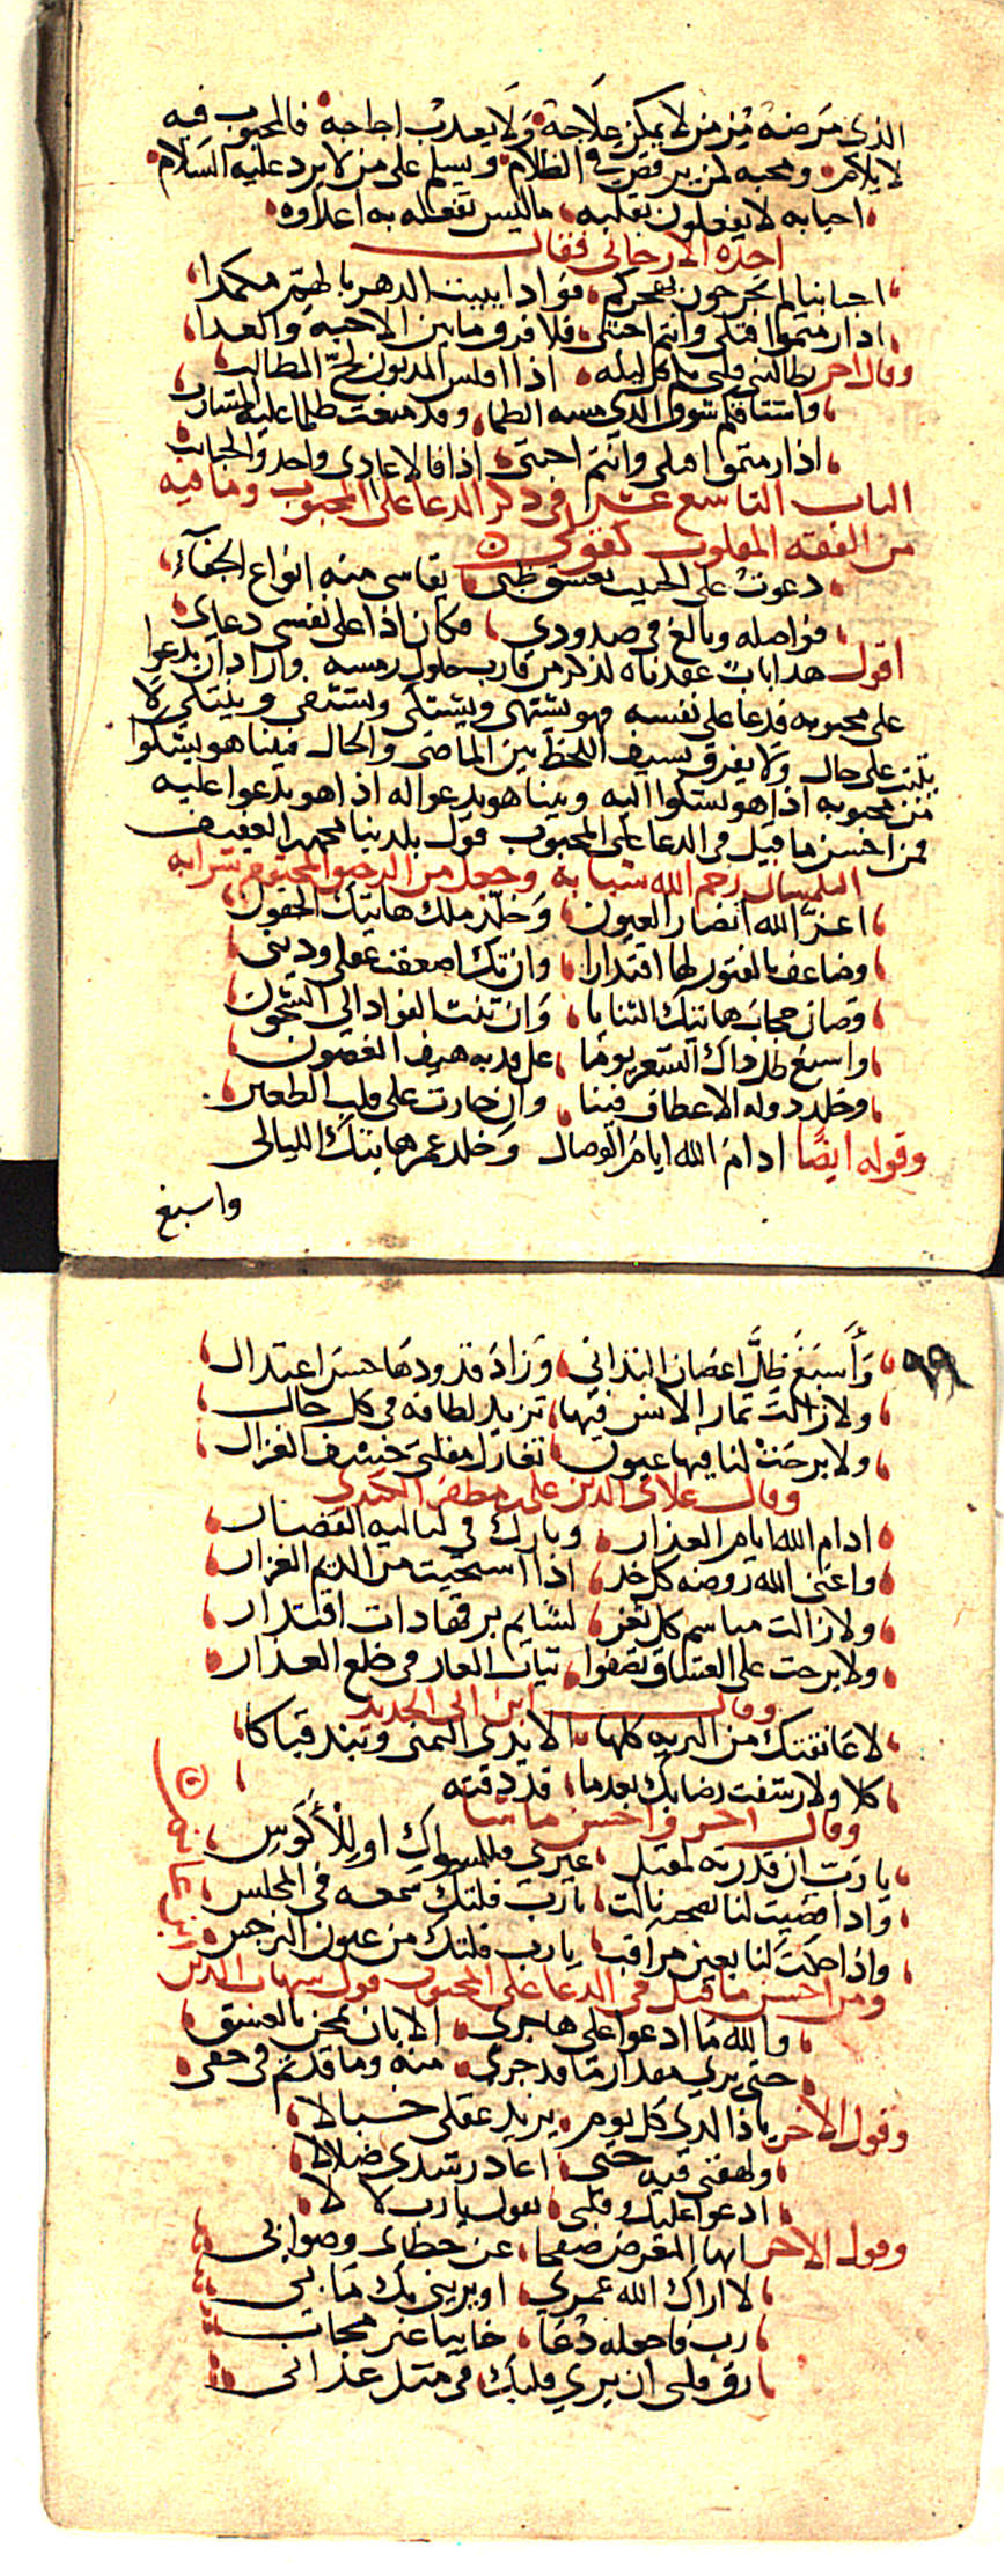 الذي مرضه مزمن لا يمكن علاجه ولا يعذب اجاجه فالمحبوب فيه
لا يلام ومحبه لمن يرقص في الظلام ويسلم على من لا يرد عليه السلام
احبابه لا يفعلون بقلبه ما ليس تفعله به اعداوه
اخذه الارجاني فقال
احبابنا لم تجرحون بهجركم فوادا يبيت الدهر بالهم مكمدا
اذا رمتموا قتلي وانتم احبتي فلا فرق ما بين الاحبة والعدا
وقال اخر يطالبني قلبي بكم كل ليله اذا افلس المديون لج المطالب
واشتاقكم شوق الذي مسه الظما وقد منعت ظلما عليه المشارب
اذا رمتموا قتلي وانتم احبتي اذا فالاعادي واحد والحبايب
الباب التاسع عشر في ذكر الدعا على المحبوب وما فيه
من الفقه المقلوب كقولي
دعوت على الحبيب بعشق ظبي يقاسي منه انواع الجفاء
فواصله وبالغ في صدودي فكان اذا على نفسي دعاي
اقول هذا باب عقدناه لذكر من قارب حلول رمسه واراد ان يدعوا
على محبوبه فدعا على نفسه فهو يشتهي ويشتكي ويستشفي ويشتكي لا
يثبت على حال ولا يفرق بسيف اللحظ بين الماضي والحال فبينا هو يشكوا
من محبوبه اذا هو يشكوا اليه وبينا هو يدعوا له اذا هو يدعوا عليه
فمن احسن ما قيل في الدعا على المحبوب قول بلدينا محمد بن العفيف
التلمساني رحم الله شبابه وجعل من الرحيق المختوم شرابه
اعز الله انصار العيون وخلد ملك هاتيك الجفون
وضاعف بالفتور لها اقتدارا وان تك اضعفت عقلي وديني
وصان حجاب هاتيك الثنايا وان ثنت الفواد الى الشجون
واسبغ ظل ذاك الشعر يوما على قد به هيف الغصون
وخلد دولة الاعطاف فينا وان جارت على قلب الطعين
وقوله ايضا ادام الله ايام الوصال وخلد عمر هاتيك الليالي
واسبغ
٩٩
وأسبغ ظل اغصان التداني وزاد قدودها حسن اعتدال
ولا زالت ثمار الانس فيها تزيد لطافة في كل حال
ولا برحت لنا فيها عيون تغازل مقلتي خشف الغزال
وقال علاي الدين علي بن مظفر الكندي
ادام الله ايام العذار وبارك في لياليه القصار
واغنى الله روضة كل خد اذا استحيت من الديم الغزار
ولا زالت مباسم كل ثغر لشايم برقها ذات افترار
ولا برحت على العشاق تضفوا ثياب العار في خلع العذار
وقال ابن ابي الحديد
لا عانقتك من البرية كلها الا يدي اليمنى وبند قباكا
كلا ولا رشفت رضابك بعدما قد ذقته
وقال اخر واحسن ما شا
يا رب ان قدرته لمقبل غيري فللمسواك او للأكوس
واذا قضيت لنا بصحبة ثالث يا رب فلتك شمعة في المجلس
واذا حكمت لنا بعين مراقب يا رب فلتك من عيون النرجس
ومن احسن ما قيل في الدعا على المحبوب قول شهاب الدين
والله ما ادعوا على هاجري الا بان يمحن بالعشق
حتى يرى مقدار ما قد جرى منه وما قد تم في حقي
وقول الاخر يا ذا الذي كل يوم يزيد عقلي خبالا
ولهفتي فيه حتى اعاد رشدي ضلالا
ادعوا عليك وقلبي يقول يا رب لا لا
وقول الاخر ايها المعرض صفحا عن خطاي وصوابي
لا اراك الله عمري او يريني بك ما بي
رب فاجعله دعا خايبا غير مجاب
رق قلبي ان يرى قلبك في مثل عذابي